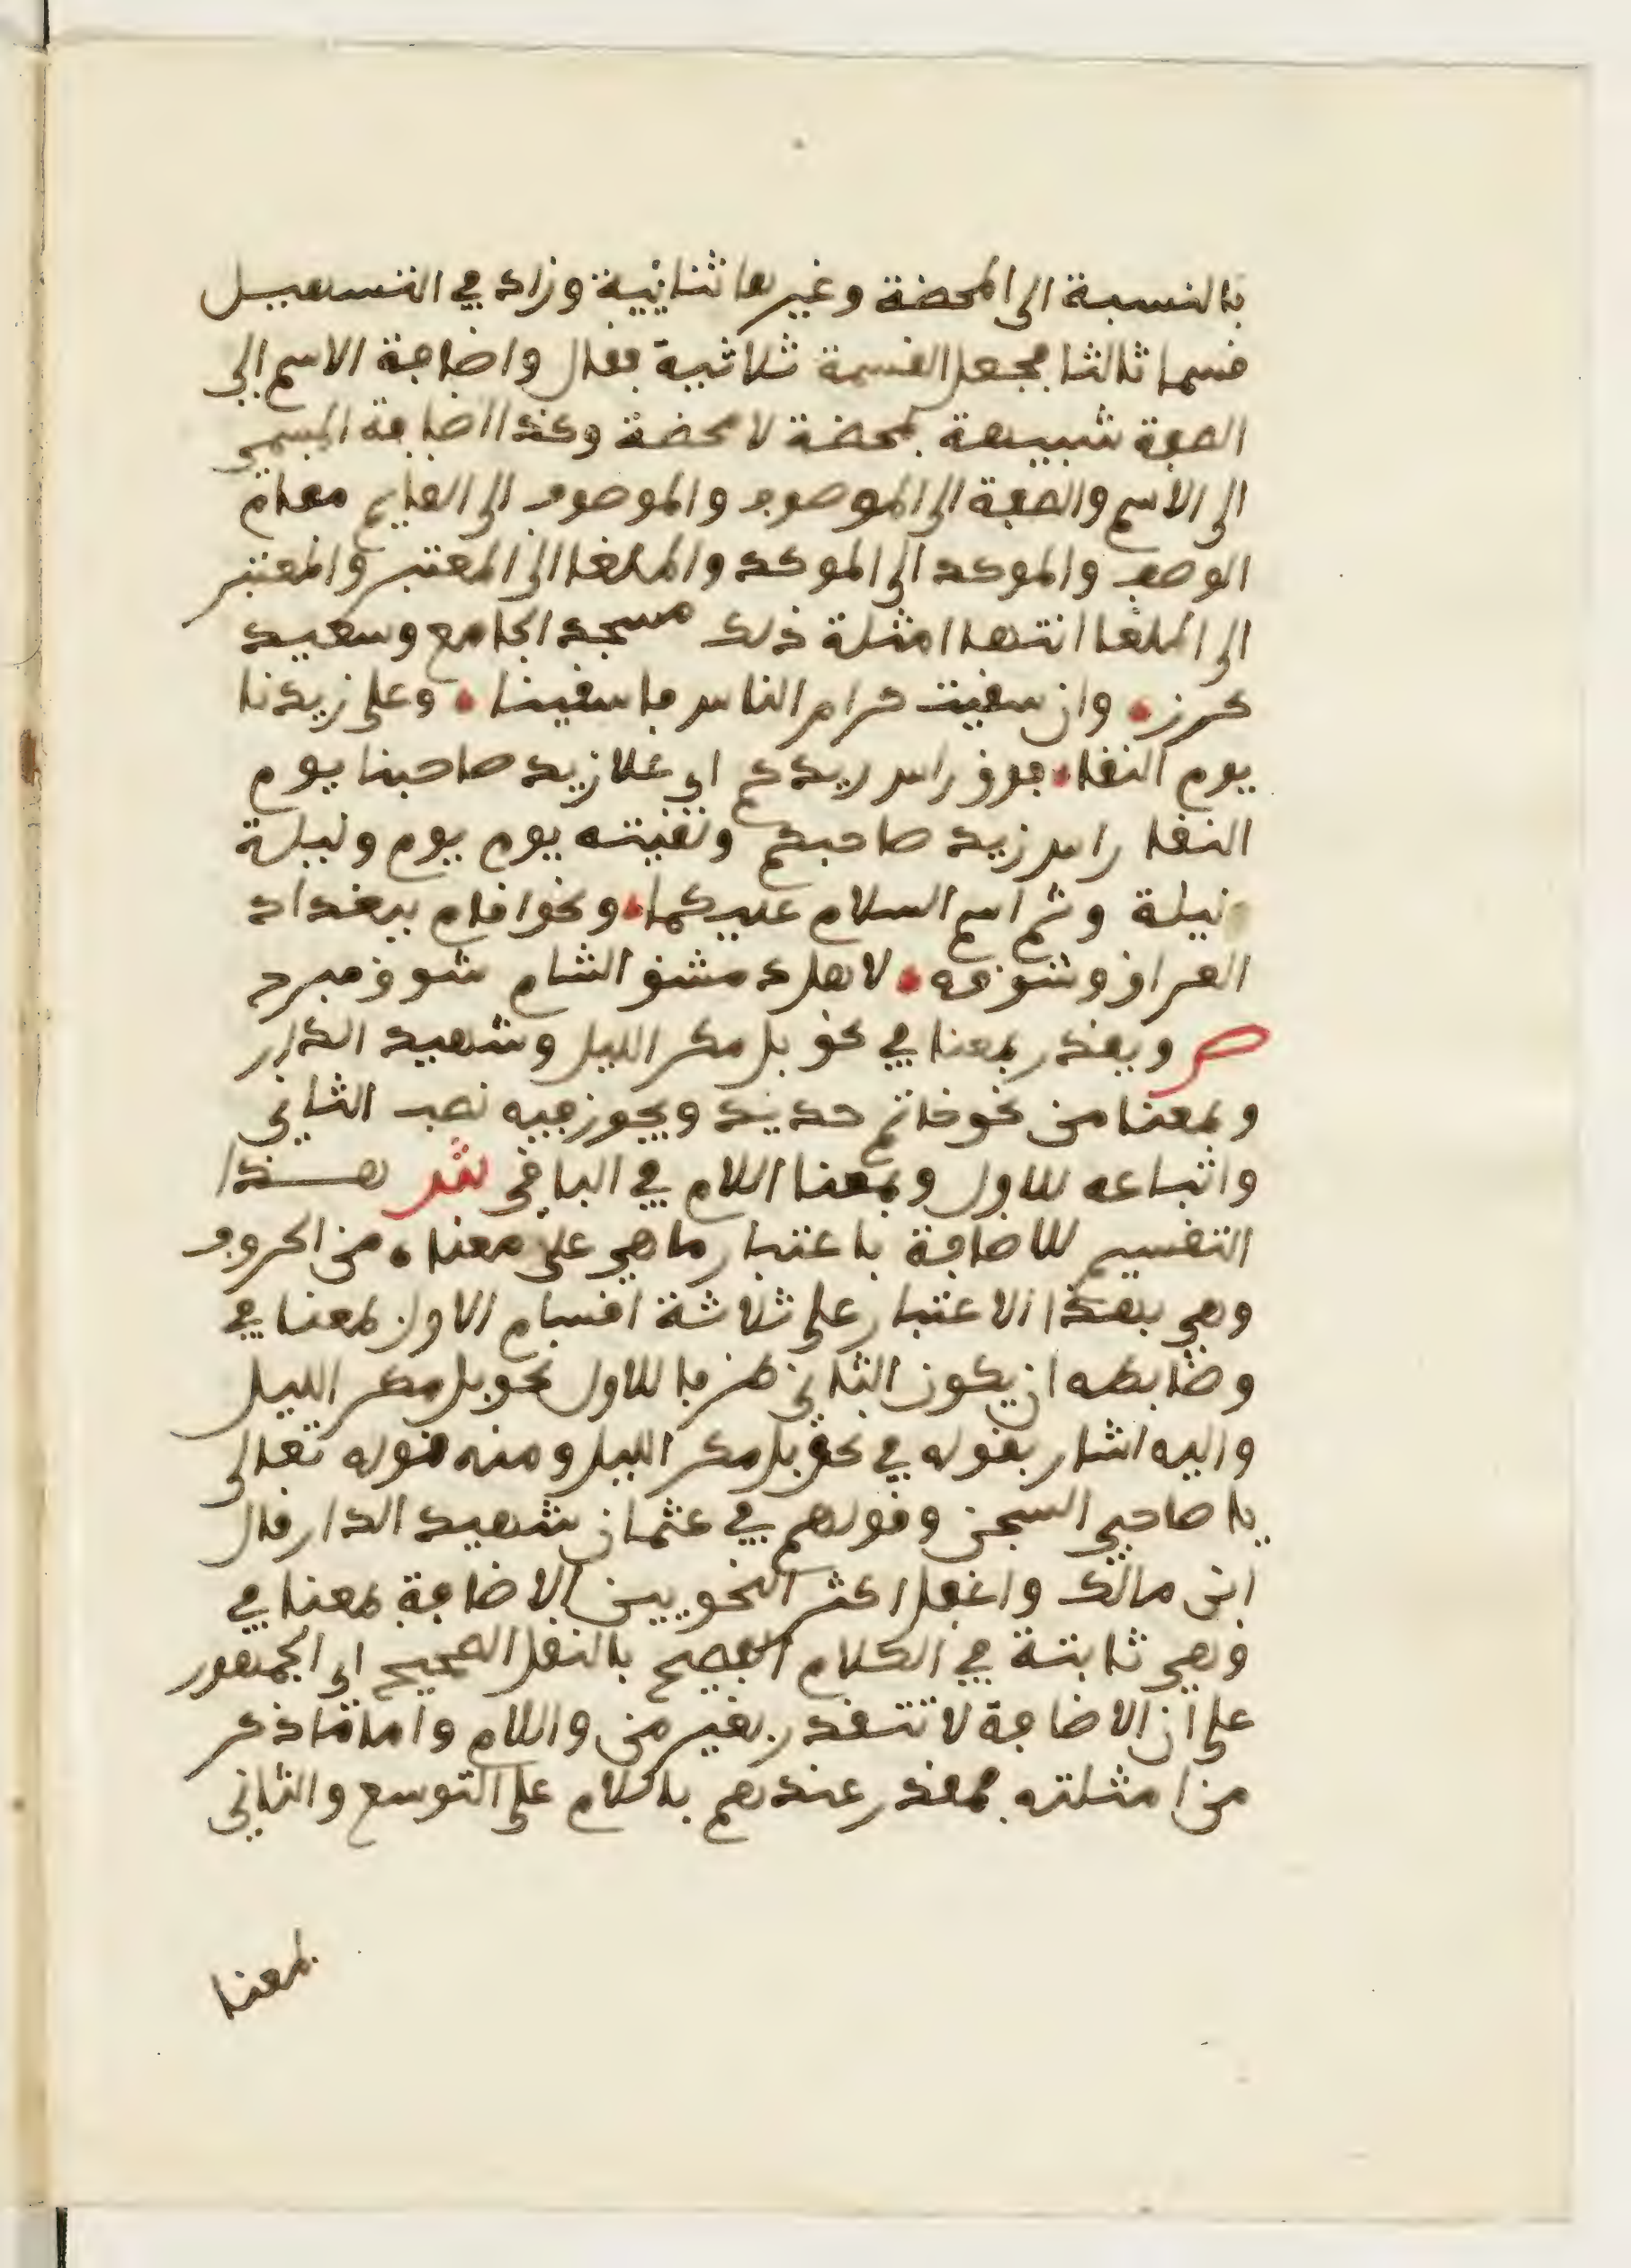 بالنسبة الى المحضة وغيرها ثنائية وزاد في التسهيل
قسما ثالثا فجعل القسمة ثلاثية فقال واضافة الاسم الى
الصفة شبيهة بمحضة لا محضة وكذا اضافة المسمى
الى الاسم والصفة الى الموصوف والموصوف الى القايم مقام
الوصف والموكد الى الموكد والملغا الى المعتبر والمعتبر
الى الملغا انتهى امثلة ذلك مسجد الجامع وسعيد
كرز وان سقيت كرام الناس فاسقينا وعلى زيدنا
يوم النقا فوق راس زيدكم اي علا زيد صاحبنا يوم
النقا راس زيد صاحبكم ولقيته يوم يوم وليلة
ليلة وثم اسم السلام عليكما ونحو اقام ببغداد
العراق وشوقه لاهل دمشق الشام شوق مبرد
ص ويقدر بمعنا في نحو بل مكر الليل وشهيد الدار
وبمعنا من نحو خاتم حديد ويجوز فيه نصب الثاني
واتباعه للاول وبمعنا اللام في الباقي ش هذا
التقسيم للاضافة باعتبار ما هي على معناه من الحروف
وهي بهذا الاعتبار على ثلاثة اقسام الاول بمعنا في
وضابطه ان يكون الثاني ظرفا للاول نحو بل مكر الليل
واليه اشار بقوله في نحو بل مكر الليل ومنه قوله تعالى
يا صاحبي السجن وقولهم في عثمان شهيد الدار قال
ابن مالك واغفل اكثر النحويين الاضافة بمعنا في
وهي ثابتة في الكلام الفصيح بالنقل الصحيح اي الجمهور
على ان الاضافة لا تتقدر بغير من واللام واما ما ذكر
من امثلته فمقدر عندهم باللام على التوسع والثاني
بمعنا